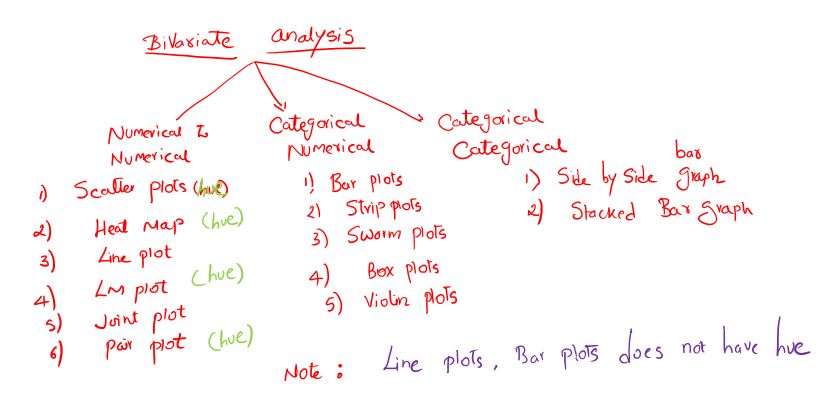 Bivariate analysis
Numerical to
Numerical
1) Scatter plots (hue)
2) Heat Map (hue)
3) Line plot
4) LM plot (hue)
5) Joint plot
6) Pair plot (hue)
Categorical
Numerical
1) Bar plots
2) Strip plots
3) Sworm plots
4) Box plots
5) Violin plots
Categorical
Categorical
1) Side by Side bar graph
2) Stacked Bar graph
Note : Line plots, Bar plots does not have hue